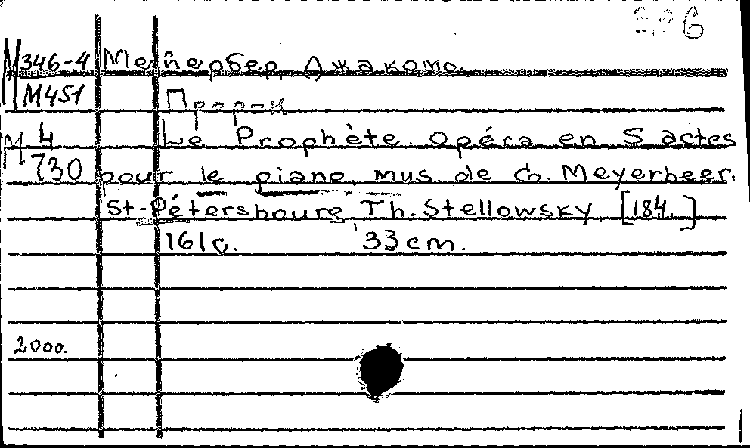 М346-4 Мейербер Джакомо.
М451 Пророк
М 4 Le Prophète opéra en 5 actes
730 pour le piano mus de G. Meyerbeer.
St-Pétersbourg Th. Stellowsky [184 ]
161с. 33 cm.
2000.